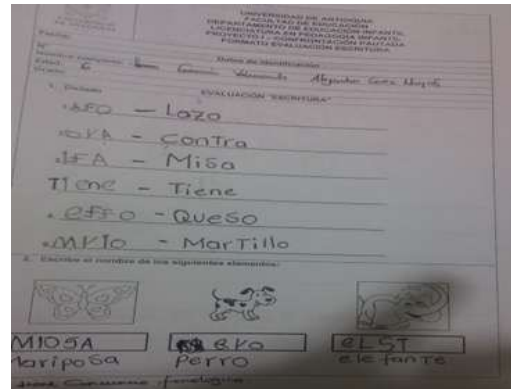 UNIVERSIDAD DE ANTIOQUIA
FACULTAD DE EDUCACIÓN
DEPARTAMENTO DE EDUCACIÓN INFANTIL
LICENCIATURA EN PEDAGOGÍA INFANTIL
PROYECTO I - CONFRONTACIÓN PAUTADA
FORMATO EVALUACIÓN ESCRITURA
Fecha:
Datos de Identificación
Edad: 6
Grado:
EVALUACIÓN "ESCRITURA"
1. Dictado
- Lazo
- Contra
.IFA - Misa
TIene - Tiene
. effo - Queso
- Martillo
2. Escribe el nombre de los siguientes elementos:
MIOSA eko eLST
Mariposa perro elefante
fonológico